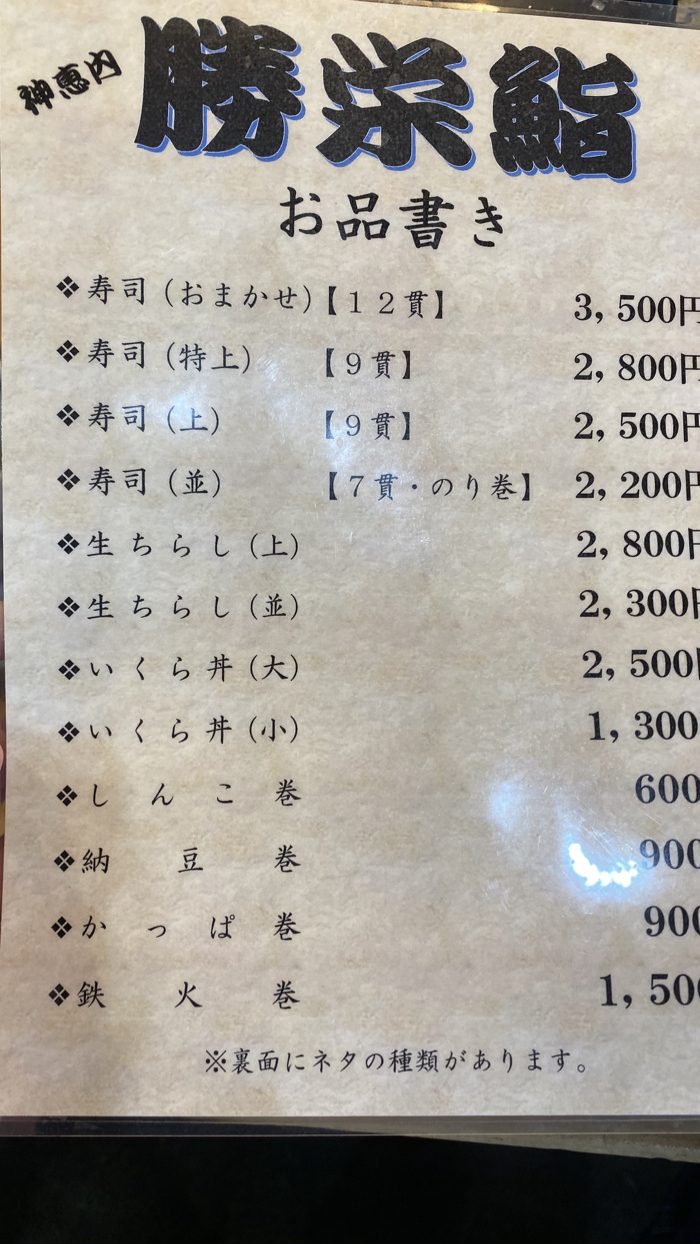 神恵内
勝栄鮨
お品書き
❖寿司(おまかせ)【12貫】 3,500円
❖寿司(特上) 【9貫】 2,800円
❖寿司(上) 【9貫】 2,500円
❖寿司(並) 【7貫・のり巻】 2,200円
❖生ちらし(上) 2,800円
❖生ちらし(並) 2,300円
❖いくら丼(大) 2,500円
❖いくら丼(小) 1,300
❖しんこ巻 600
❖納豆巻 900
❖かっぱ巻 900
❖鉄火巻 1,500
※裏面にネタの種類があります。